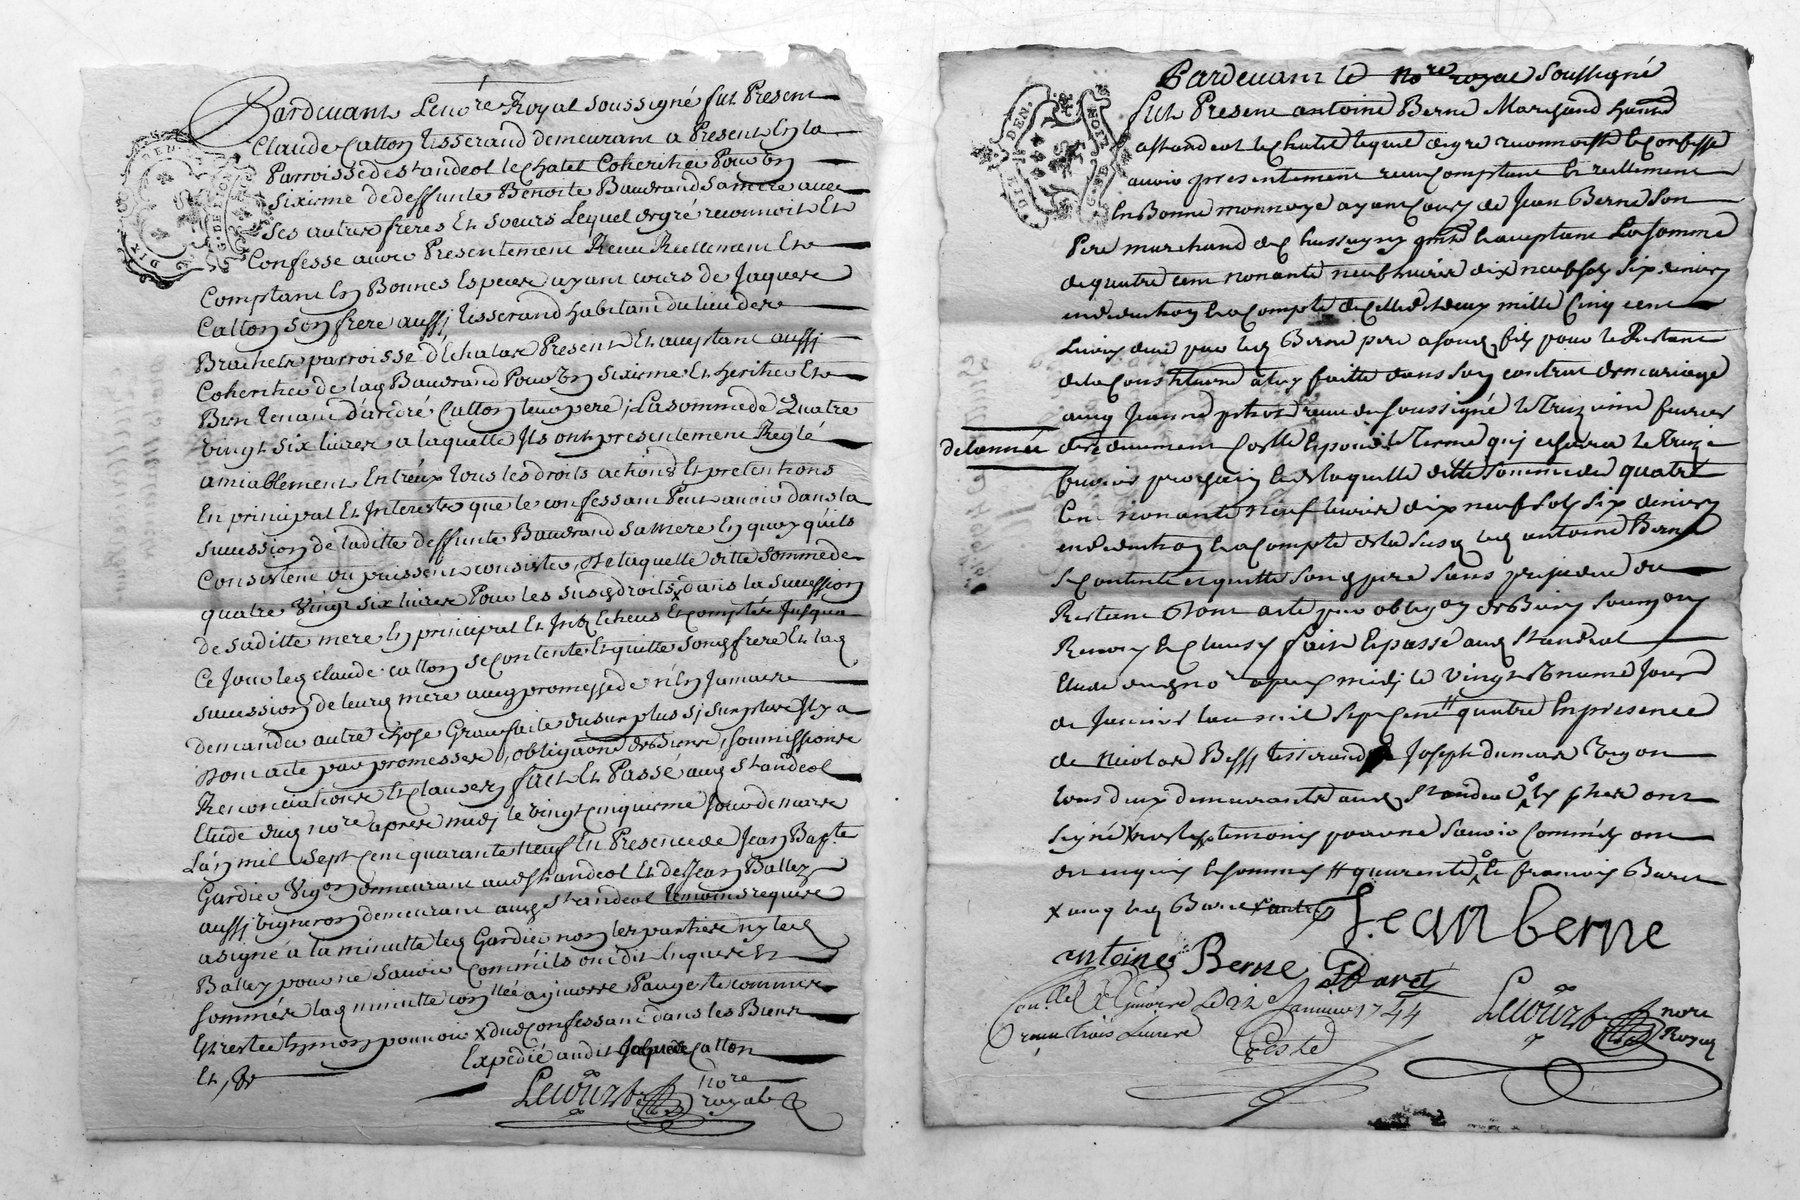 Pardevant Le no.re Royal soussigné fut Present
Claude Catton tisserand demeurant a Present En la
Parroisse de st andeol le chatel Coheritier Pour Un
sixieme de deffunte Benoite Baudrand sa mere avec
ses autres freres Et soeurs Lequel de gré reconnoit Et
Confesse avoir Presentement Receu Reellement Et
Comptant En Bonnes Especes ayant cours de Jaques
Catton son frere aussj tisserand habitant du lieu des
parroisse d'Echalas Present Et acceptant aussj
Coheritier de lad Baudrand Pour Un sixieme Et heritier Et
Bien tenant d'andré Catton leur pere, La somme de Quatre
vingt six livres a laquelle Ils ont presentement Reglé
amiablement Entr'eux tous les droits actions Et pretentions
En principal Et Interests que le confessant Peut avoir dans la
succession de laditte deffunte Baudrand sa Mere En quoy qu'ils
Consistent ou puissent consister, De laquelle ditte somme de
quatre Vingt six livres Pour les susd droits x dans la succession
de saditte mere En principal Et Intz Echeus Et a compter Jusqu'a
Ce Jour led claude Catton se contente Et quitte sond frere Et lad
succession de leurd mere avec promesse de n'En Jamais
demander autre chose Grace faite du surplus sj surplus Il y a
Dont acte par promesses, obligaons de Biens, soumissions
Renonciations Et clauses, fait Et Passé aud st andeol
Etude dud no.re apres midj le vingt cinquieme Jour de mars
L'an mil sept cent quarante neuf En Presence de Jean Bap.te
Gardier Vigon demeurant aud st andeol Et de Jean Ballez
aussj vigneron demeurant aud st andeol temoins requis
a signé a la minutte led Gardier non les parties ny led
Ballez pour ne savoir Comm'ils ont dit Enquis Et
sommés lad minutte con.llée a givors Par geste commis
Et restée En mon pouvoir x dud Confessant dans les Biens
Expedié audit Jaques Catton
Et, &
Lecourbe no.re
royal
Pardevant le no.re royal soussigné
fut Present antoine Berne Marchand
a st andeol le chatel lequel de gré reconnoit Et confesse
avoir presentement receu comptant Et reellement
En Bonne monnoye ayant cours de Jean Berne son
Pere marchand de Chassagny present Et acceptant La somme
de quatre cent nonante neuf livres dix neuf sols six deniers
en deduction Et a compte de celle de deux mille cinq cent
Livres deue par led Berne pere a son d fils pour le Restant
de la Constitution a luy faitte dans son contrat de mariage
avec Jeanne receu du soussigné le treizieme fevrier
de l'année derniere
le terme quj echerra le treize
fevrier prochain Et de laquelle ditte somme de quatre
Cent nonante neuf livres dix neuf sols six deniers
en deduction Et a compte de la susd led antoine Berne
se contente et quitte sond pere sans prejudice du
Restant Dont acte par obligaon de Biens soumons
Renons Et clauses fait Et passé aud st andeol
Etude dud no.re apres midj le vingt Unieme Jour
de Janvier l'an mil sept cent # quatre En presence
de Nicolas tisserand & Joseph dumas Vigon
tous deux demeurants aud st andeol les pties ont
signé x non les temoins pour ne savoir Comm'ils ont
dit enquis Et sommés # quarente & francois Baret
x avec led Baret
Jean berne
antoine Berne Baret
Con.llé a Givors Le 22e Janvier 1744
receu trois Livres
Geste
Lecourbe no.re
Royal